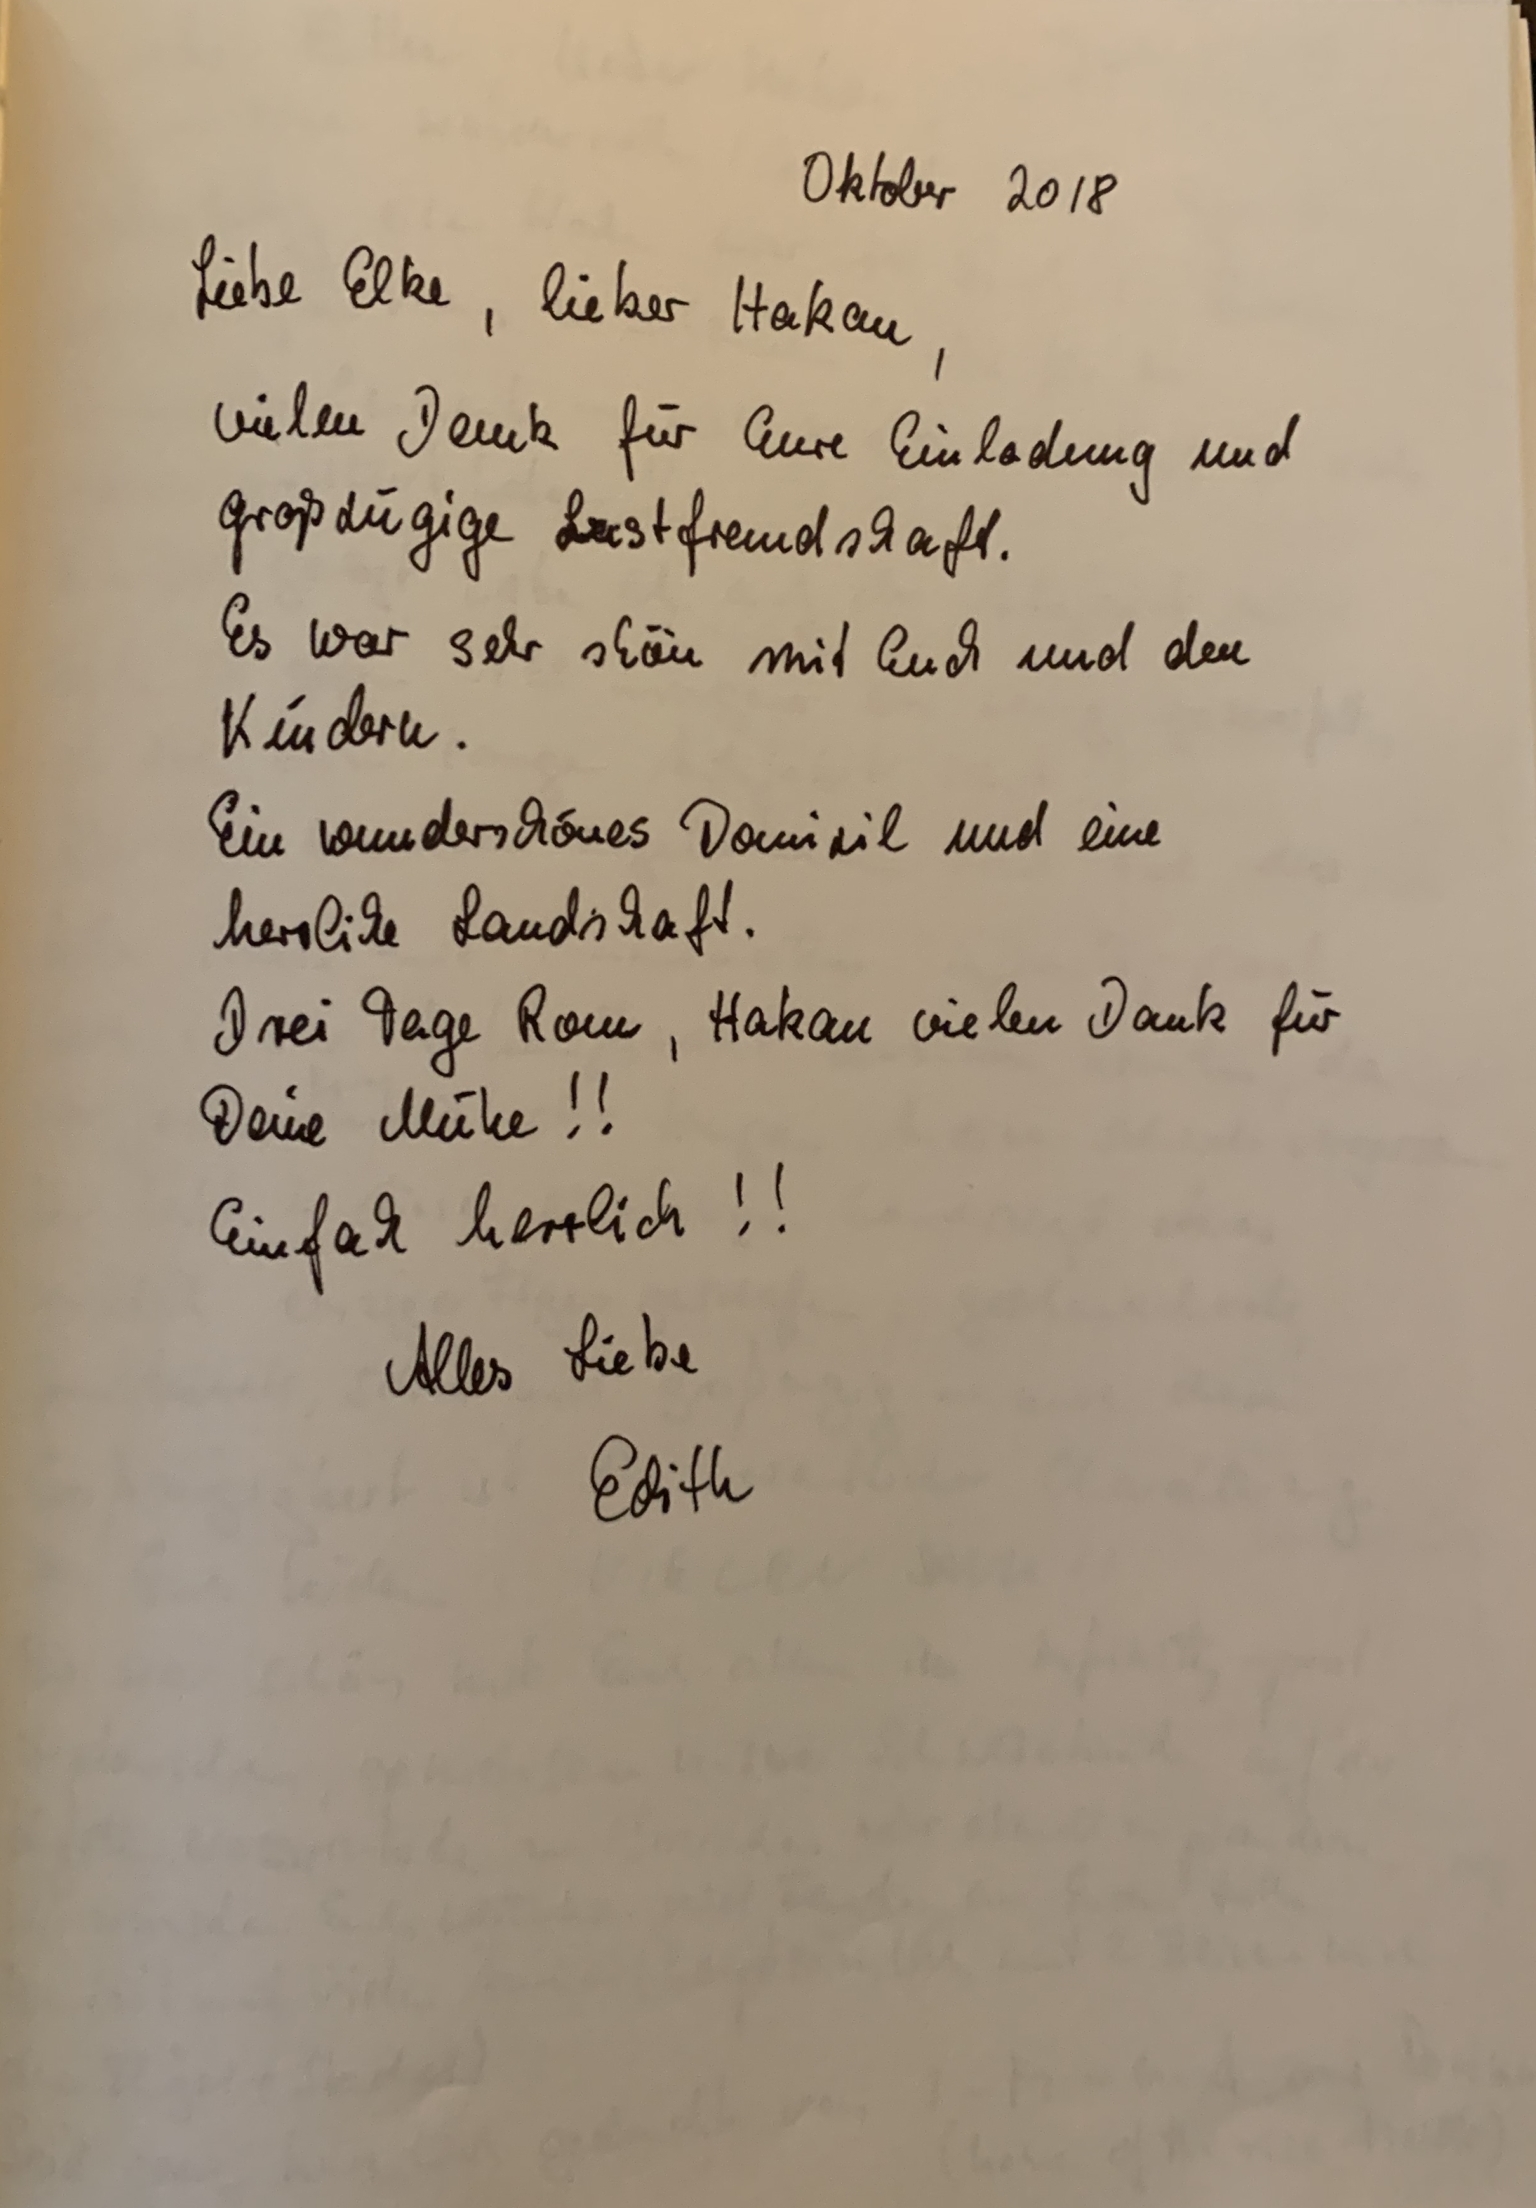 Oktober 2018
Liebe Elke, lieber Hakan,
vielen Dank für Eure Einladung und
großzügige Gastfreundschaft.
Es war sehr schön mit Euch und den
Kindern.
Ein wunderschönes Domizil und eine
herrliche Landschaft.
Drei Tage Rom, Hakan vielen Dank für
Deine Mühe!!
Einfach herrlich!!
Alles Liebe
Edith